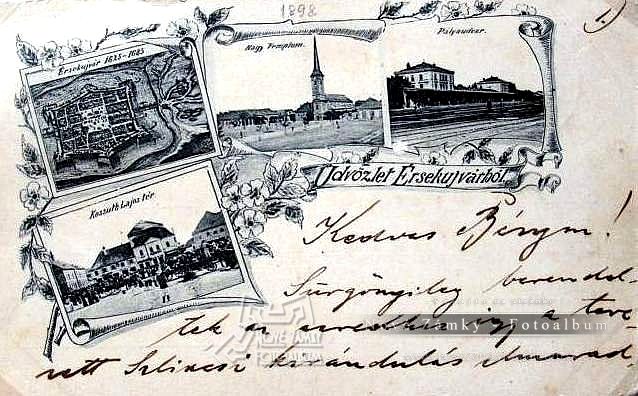 1898
1.)
Érsekujvár 1625-1683
Nagy Templom.
Pályaudvar.
Üdvözlet Érsekujvárból
Kossuth Lajos tér.
Kedves
Sürgönyileg berendel-
tek az ezredhez így a terve-
zett Szliácsi kirándulás elmarad-
NOVÉ ZÁMKY
FOTOALBUM
Zamky Fotoalbum